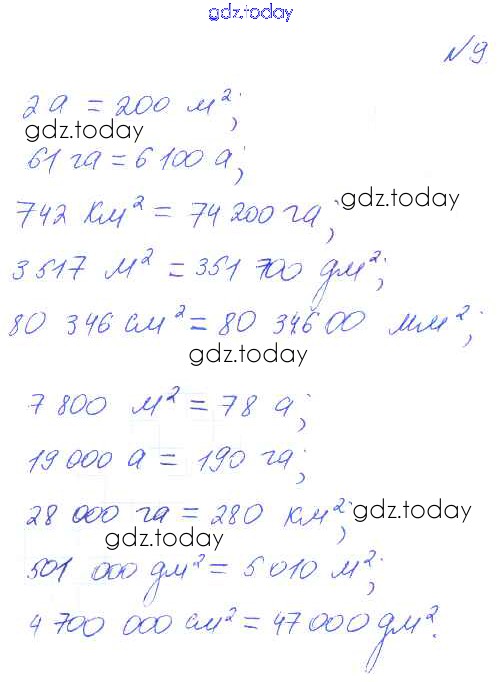 gdz.today
№9
2 а = 200 м²;
gdz.today
61 га = 6 100 а;
gdz.today
742 км² = 74 200 га;
3 517 м² = 351 700 дм²;
80 346 см² = 80 346 00 мм²;
gdz.today
7 800 м² = 78 а;
19 000 а = 190 га;
gdz.today
28 000 га = 280 км²;
gdz.today
501 000 дм² = 5 010 м²;
4 700 000 см² = 47 000 дм².